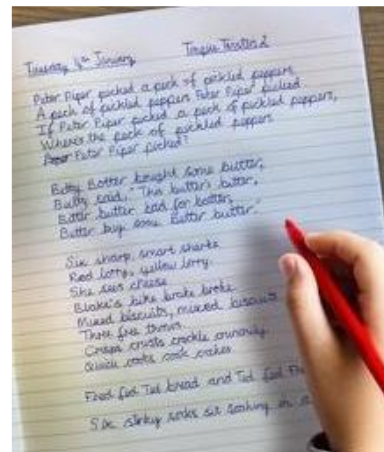 Tuesday 4th January Tongue Twisters 2
Peter Piper picked a peck of pickled peppers
A peck of pickled peppers Peter Piper picked
If Peter Piper picked a peck of pickled peppers,
Where's the peck of pickled peppers
Peter Piper picked?
Betty Botter bought some butter,
Betty said, "This butter's bitter,
Bitter butter bad for batter,
Better buy some better butter."
Six sharp smart sharks
Red lorry, yellow lorry.
She sees cheese
Blake's bike broke
Mixed biscuits, mixed biscuits
Three free throws
Crisps crusts crackle crunchily
Quick cooks cook cakes
Fred fed Ted bread and Ted fed
Six stinky socks sit soaking in a